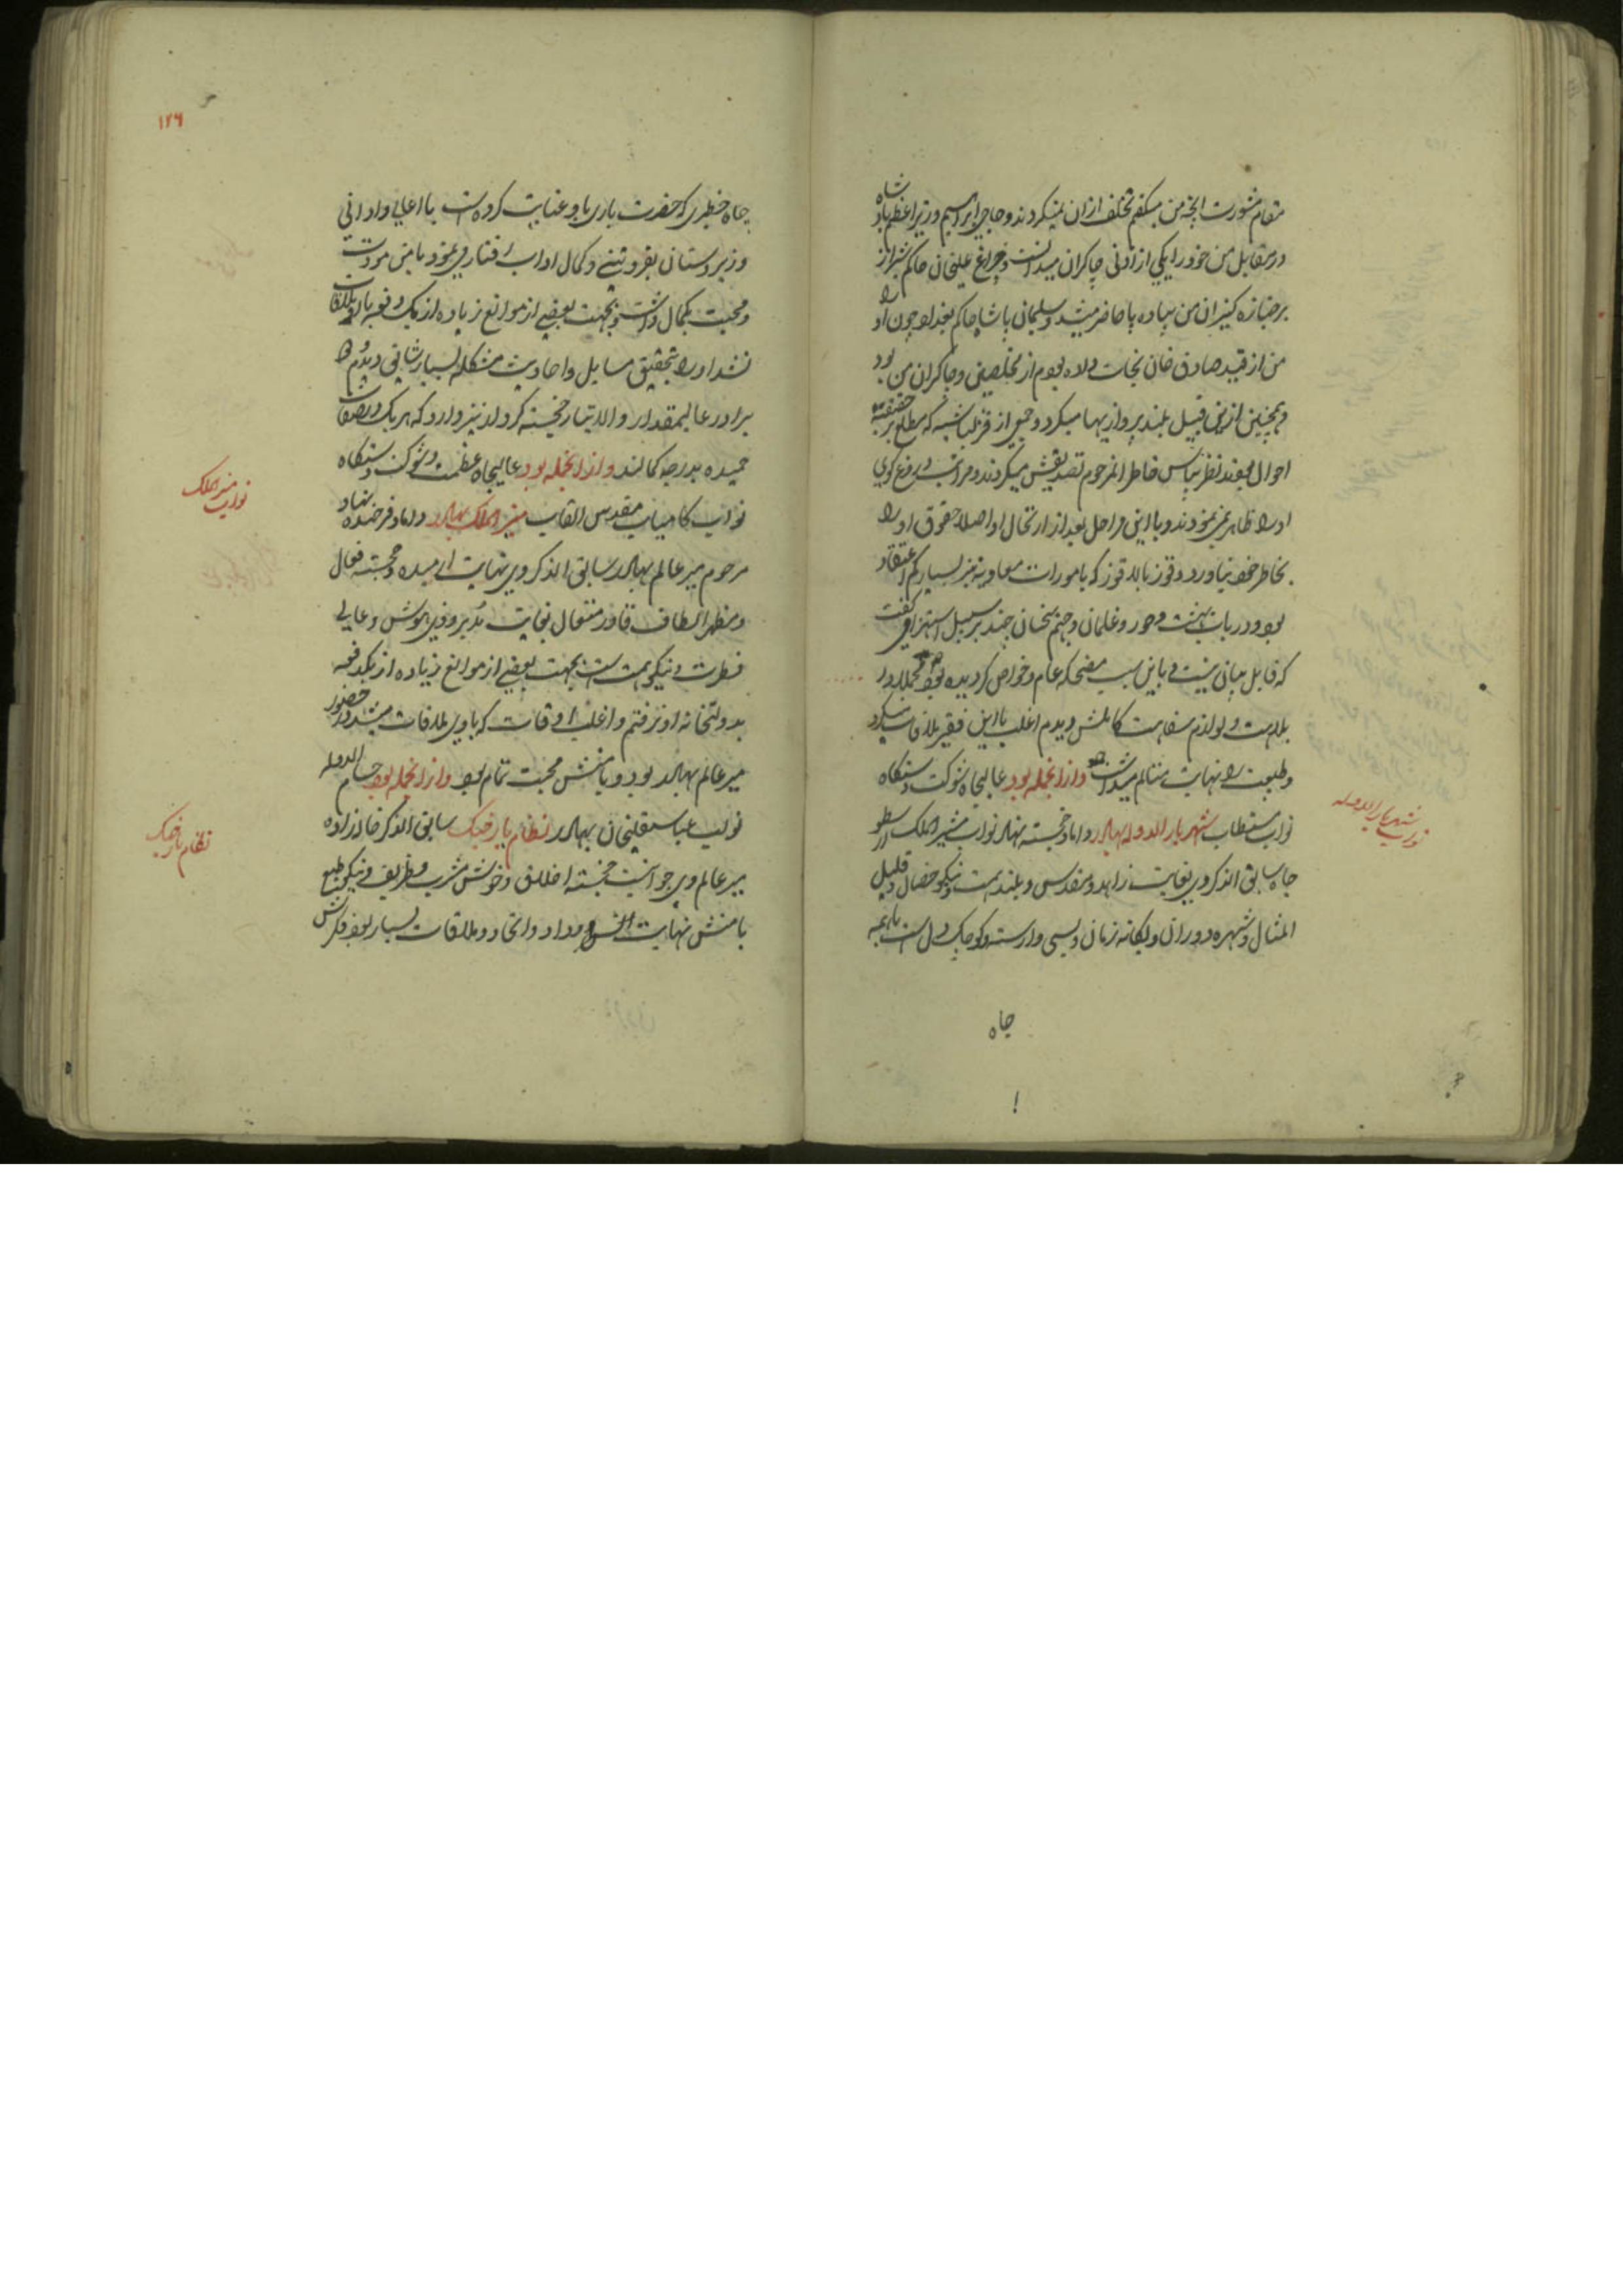 مقام مشورت آنچه من میگفتم تخلف ازان نمیکردند و حاجی ابراهیم وزیر اعظم بادشاه
در مقابل من خود را یکی از ادنی چاکران میدانست و چراغ علیخان حاکم شیراز
بر جنازه کنیزان من پیاده پا حاضر میشد و سلیمان پاشا حاکم بغداد چون او را
من از قید صادق خان نجات داده بودم از مخلصین و چاکران من بود
و همچنین ازین قبیل بلند پروازیها میکرد و جمعی از قزلباشیه که مطلع بر حقیقت
احوال بودند نظر بپاس خاطر انمرحوم تصدیقش میکردند و مراتب دروغ گوی
او را ظاهر نمی نمودند و با این مراحل بعد از ارتحال او اصلا حقوق او را
بخاطر خود نیاورد و قوز بالا قوز که بامورات معاد نیز بسیار کم اعتقاد
بود و در باب بهشت و حور و غلمان و جهنم سخنان چند بر سبیل استهزا میگفت
که قابل بیان نیست و باین سبب مضحکه عام و خواص گردیده بود مجملا در
بلاهت و لوازم سفاهت کاملش دیدم اغلب با این فقیر ملاقات میکرد
و طبیعت را نهایت متالم میداشت و ازانجمله بود عالیجاه شوکت دستگاه
نواب مستطاب شهریار الدوله بهادر داماد خجسته نهاد نواب مشیر الملک ارسطو
جاه سابق الذکر وی بغایت زاهد و مقدس و بلند همت و نیکو خصال و قلیل
المثال و شهره دوران و یگانه زمان و بسی وارسته و کوچک دل است با همه
نواب شهریار الدوله
جاه
۱۲۶
جاه خطیری که حضرت باری باو عنایت کرده است با اعالی و ادانی
و زیردستان بفروتنی و کمال اداب رفتار می نمود با من مودت
و محبت بکمال داشت و بجهت بعضی از موانع زیاده از یک دفعه با او ملاقات
نشد او را بتحقیق مسایل و احادیث مشکله بسیار شایق دیدم و
برادر عالیمقدار والا تبار خجسته کردار نیز دارد که هر یک در صفات
حمیده بدرجه کمالند و ازانجمله بود عالیجاه عظمت و شوکت دستگاه
نواب کامیاب مقدس القاب منیر الملک بهادر داماد فرخنده نهاد
مرحوم میر عالم بهادر سابق الذکر وی نهایت ارمیده و خجسته فعال
و مظهر الطاف قادر متعال بغایت مدبر و ذی هوش و عالی
فطرت و نیکو همت است بجهت بعضی از موانع زیاده از یکدفعه
بدولتخانه او نرفتم و اغلب اوقات که باوی ملاقات میشد در حضور
میر عالم بهادر بود و با منش محبت تمام بود و ازانجمله بود حسام الدوله
نواب عباسقلیخان بهادر نظام یار جنگ سابق الذکر خانه زاده
میر عالم وی جوانیست خجسته اخلاق و خوش مشرب و ظریف و نیکو طبع
با منش نهایت انس و وداد و اتحاد و ملاقات بسیار بود فکرش
نواب منیر الملک
نظام یار جنگ